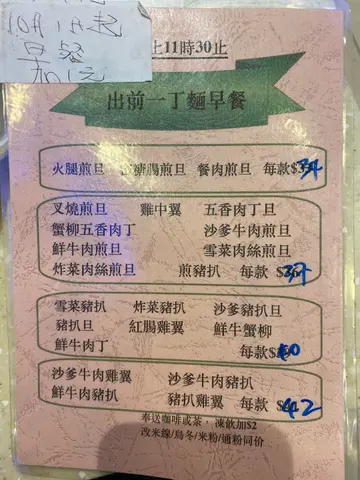 10月1日起
早餐
加1元
上11時30止
出前一丁麵早餐
火腿煎旦 腸煎旦 餐肉煎旦 每款$34
叉燒煎旦 雞中翼 五香肉丁旦
蟹柳五香肉丁 沙爹牛肉煎旦
鮮牛肉煎旦 雪菜肉絲煎旦
炸菜肉絲煎旦 煎豬扒 每款 37
雪菜豬扒 炸菜豬扒 沙爹豬扒旦
豬扒旦 紅腸雞翼 鮮牛蟹柳
鮮牛肉丁 每款$40
沙爹牛肉雞翼 沙爹牛肉豬扒
鮮牛肉豬扒 豬扒雞翼 每款 42
奉送咖啡或茶，凍飲加$2
改米線/烏冬/米粉/通粉同价